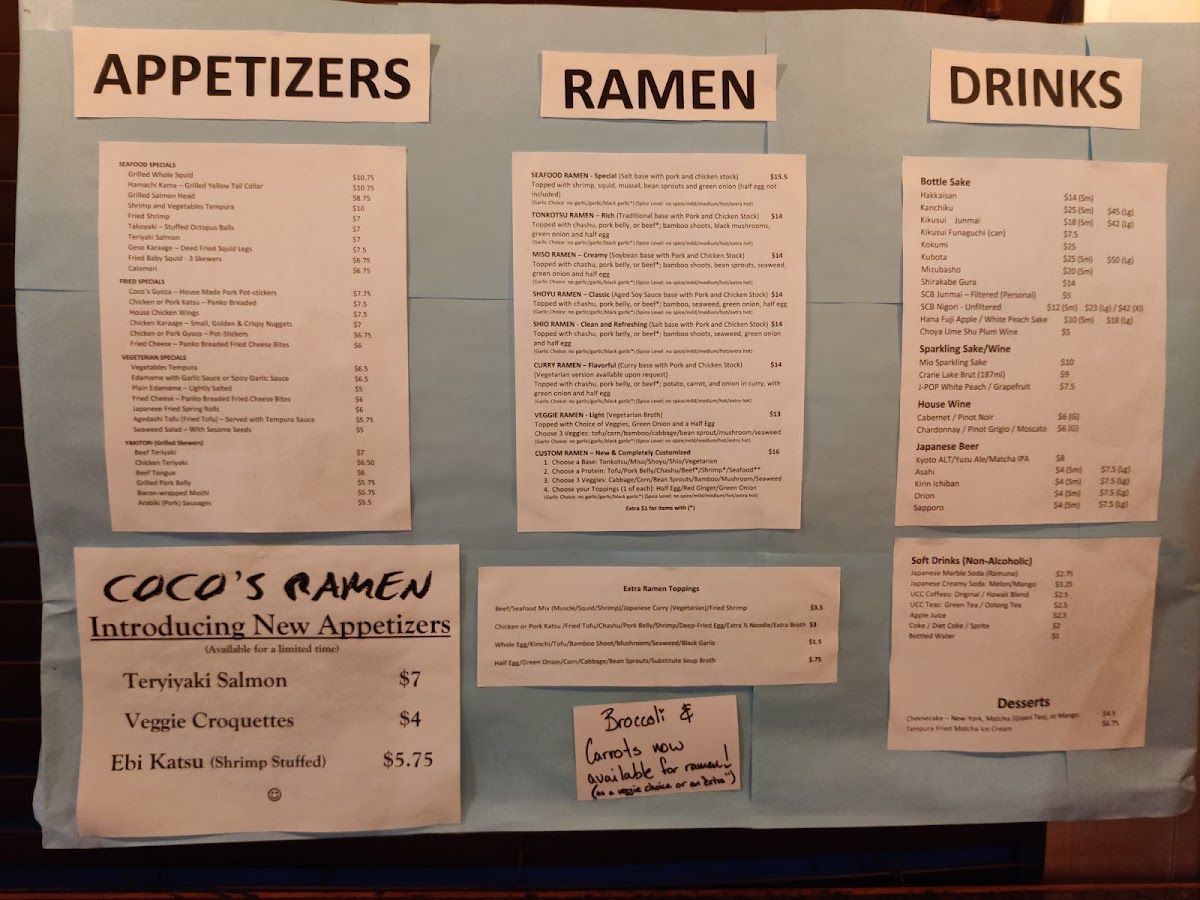 APPETIZERS
SEAFOOD SPECIALS
Grilled Whole Squid $10.75
Hamachi Kama – Grilled Yellow Tail Collar $10.75
Grilled Salmon Head $8.75
Shrimp and Vegetables Tempura $10
Fried Shrimp $7
Takoyaki – Stuffed Octopus Balls $7
Teriyaki Salmon $7
Geso Karaage – Deed Fried Squid Legs $7.5
Fried Baby Squid - 3 Skewers $6.75
Calamari $6.75
FRIED SPECIALS
Coco's Gyoza – House Made Pork Pot-stickers $7.75
Chicken or Pork Katsu – Panko Breaded $7.5
House Chicken Wings $7.5
Chicken Karaage – Small, Golden & Crispy Nuggets $7
Chicken or Pork Gyoza – Pot-Stickers $6.75
Fried Cheese – Panko Breaded Fried Cheese Bites $6
VEGETERIAN SPECIALS
Vegetables Tempura $6.5
Edamame with Garlic Sauce or Spicy Garlic Sauce $6.5
Plain Edamame – Lightly Salted $5
Fried Cheese – Panko Breaded Fried Cheese Bites $6
Japanese Fried Spring Rolls $6
Agedashi Tofu (Fried Tofu) – Served with Tempura Sauce $5.75
Seaweed Salad – With Sesame Seeds $5
YAKITORI (Grilled Skewers)
Beef Teriyaki $7
Chicken Teriyaki $6.50
Beef Tongue $6
Grilled Pork Belly $5.75
Bacon-wrapped Mochi $5.75
Arabiki (Pork) Sausages $5.5
COCO'S RAMEN
Introducing New Appetizers
(Available for a limited time)
Teryiyaki Salmon $7
Veggie Croquettes $4
Ebi Katsu (Shrimp Stuffed) $5.75
RAMEN
SEAFOOD RAMEN - Special (Salt base with pork and chicken stock) $15.5
Topped with shrimp, squid, mussel, bean sprouts and green onion (half egg not
included)
(Garlic Choice: no garlic/garlic/black garlic*) (Spice Level: no spice/mild/medium/hot/extra hot)
TONKOTSU RAMEN – Rich (Traditional base with Pork and Chicken Stock) $14
Topped with chashu, pork belly, or beef*; bamboo shoots, black mushrooms,
green onion and half egg
(Garlic Choice: no garlic/garlic/black garlic*) (Spice Level: no spice/mild/medium/hot/extra hot)
MISO RAMEN – Creamy (Soybean base with Pork and Chicken Stock) $14
Topped with chashu, pork belly, or beef*; bamboo shoots, bean sprouts, seaweed,
green onion and half egg
(Garlic Choice: no garlic/garlic/black garlic*) (Spice Level: no spice/mild/medium/hot/extra hot)
SHOYU RAMEN – Classic (Aged Soy Sauce base with Pork and Chicken Stock) $14
Topped with chashu, pork belly, or beef*; bamboo, seaweed, green onion, half egg
(Garlic Choice: no garlic/garlic/black garlic*) (Spice Level: no spice/mild/medium/hot/extra hot)
SHIO RAMEN - Clean and Refreshing (Salt base with Pork and Chicken Stock) $14
Topped with chashu, pork belly, or beef*; bamboo shoots, seaweed, green onion
and half egg
(Garlic Choice: no garlic/garlic/black garlic*) (Spice Level: no spice/mild/medium/hot/extra hot)
CURRY RAMEN – Flavorful (Curry base with Pork and Chicken Stock) $14
(Vegetarian version available upon request)
Topped with chashu, pork belly, or beef*; potato, carrot, and onion in curry, with
green onion and half egg
(Garlic Choice: no garlic/garlic/black garlic*) (Spice Level: no spice/mild/medium/hot/extra hot)
VEGGIE RAMEN - Light (Vegetarian Broth) $13
Topped with Choice of Veggies, Green Onion and a Half Egg
Choose 3 Veggies: tofu/corn/bamboo/cabbage/bean sprout/mushroom/seaweed
(Garlic Choice: no garlic/garlic/black garlic*) (Spice Level: no spice/mild/medium/hot/extra hot)
CUSTOM RAMEN – New & Completely Customized $16
1. Choose a Base: Tonkotsu/Miso/Shoyu/Shio/Vegetarian
2. Choose a Protein: Tofu/Pork Belly/Chashu/Beef*/Shrimp*/Seafood**
3. Choose 3 Veggies: Cabbage/Corn/Bean Sprouts/Bamboo/Mushroom/Seaweed
4. Choose your Toppings (1 of each): Half Egg/Red Ginger/Green Onion
(Garlic Choice: no garlic/garlic/black garlic*) (Spice Level: no spice/mild/medium/hot/extra hot)
Extra $1 for items with (*)
Extra Ramen Toppings
Beef/Seafood Mix (Muscle/Squid/Shrimp)/Japanese Curry (Vegetarian)/Fried Shrimp $3.5
Chicken or Pork Katsu /Fried Tofu/Chashu/Pork Belly/Shrimp/Deep-Fried Egg/Extra ½ Noodle/Extra Broth $3
Whole Egg/Kimchi/Tofu/Bamboo Shoot/Mushroom/Seaweed/Black Garlic $1.5
Half Egg/Green Onion/Corn/Cabbage/Bean Sprouts/Substitute Soup Broth $.75
Broccoli &
Carrots now
available for ramen!
(as a veggie choice or an "extra")
DRINKS
Bottle Sake
Hakkaisan $14 (Sm)
Kanchiku $25 (Sm) $45 (Lg)
Kikusui Junmai $18 (Sm) $42 (Lg)
Kikusui Funaguchi (can) $7.5
Kokumi $25
Kubota $25 (Sm) $50 (Lg)
Mizubasho $20 (Sm)
Shirakabe Gura $14
SCB Junmai – Filtered (Personal) $5
SCB Nigori - Unfiltered $12 (Sm) $23 (Lg) / $42 (Xl)
Hana Fuji Apple / White Peach Sake $10 (Sm) $18 (Lg)
Choya Ume Shu Plum Wine $5
Sparkling Sake/Wine
Mio Sparkling Sake $10
Crane Lake Brut (187ml) $9
J-POP White Peach / Grapefruit $7.5
House Wine
Cabernet / Pinot Noir $6 (G)
Chardonnay / Pinot Grigio / Moscato $6 (G)
Japanese Beer
Kyoto ALT/Yuzu Ale/Matcha IPA $8
Asahi $4 (Sm) $7.5 (Lg)
Kirin Ichiban $4 (Sm) $7.5 (Lg)
Orion $4 (Sm) $7.5 (Lg)
Sapporo $4 (Sm) $7.5 (Lg)
Soft Drinks (Non-Alcoholic)
Japanese Marble Soda (Ramune) $2.75
Japanese Creamy Soda: Melon/Mango $3.25
UCC Coffees: Original / Hawaii Blend $2.5
UCC Teas: Green Tea / Oolong Tea $2.5
Apple Juice $2.5
Coke / Diet Coke / Sprite $2
Bottled Water $1
Desserts
Cheesecake – New York, Matcha (Green Tea), or Mango $4.5
Tempura Fried Matcha Ice Cream $6.75